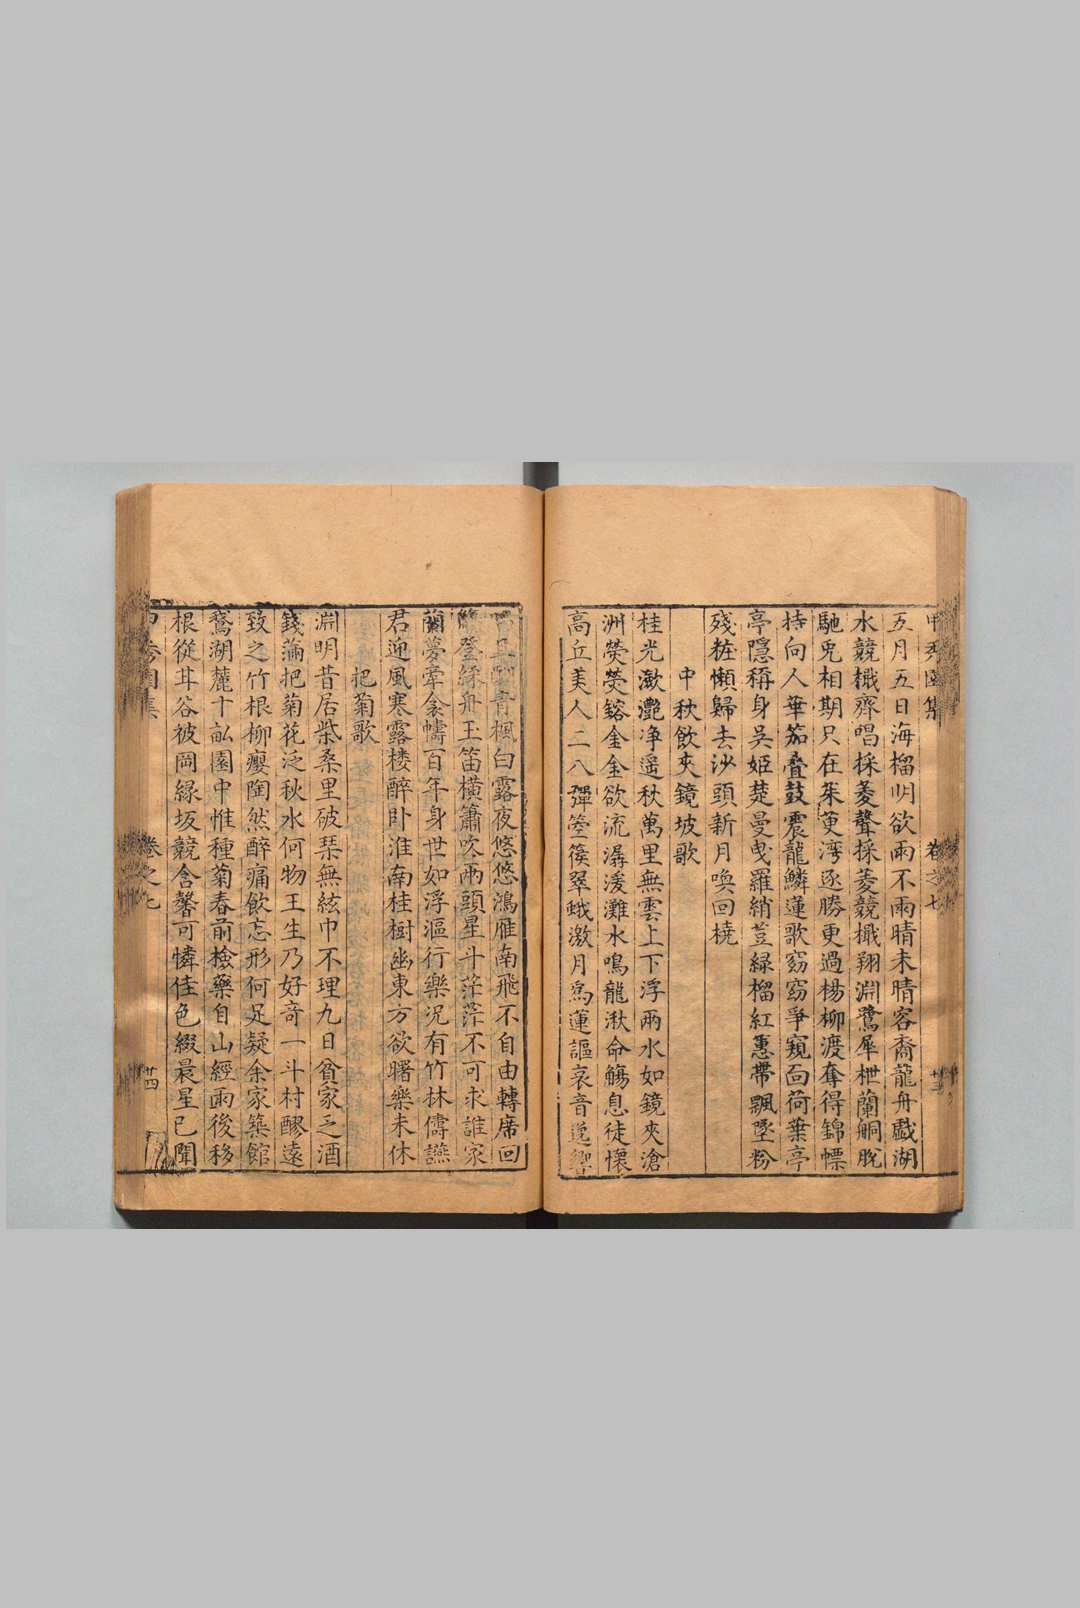 甲秀園集 卷之七
五月五日海榴明欲雨不雨晴未晴客喬龍舟戲湖
水競檝齊唱採菱聲採菱競檝翔淵鷺犀枻蘭舸脫
馳兎相期只在朱更灣逐勝更過楊柳渡奪得錦幖
持向人華茄疊鼓震龍鱗蓮歌窈窈爭窺面荷葉亭
亭隱稱身吳姬楚曼曳羅綃荳緑榴紅蕙帶飄墜粉
殘粧懶歸去沙頭新月喚回橈
中秋飲夾鏡坡歌
桂光瀲灔净遥秋萬里無雲上下浮兩水如鏡夾滄
洲熒熒鎔金金欲流潺湲灘水鳴龍湫命觴息徒懷
高丘美人二八彈箜篌翠蛾激月爲蓮謳哀音遞響
青楓白露夜悠悠鴻雁南飛不自由轉席回
登綵舟玉笛橫簫吹兩頭星斗茫茫不可求誰家
蘭夢牽衾幬百年身世如浮漚行樂况有竹林儔讌
君迎風寒露楼醉卧淮南桂樹幽東方欲曙樂未休
把菊歌
淵明昔居柴桑里破琹無絃巾不理九日貧家乏酒
錢滿把菊花泛秋水何物王生乃好竒一斗村醪遠
致之竹根柳癭陶然醉痛飲忘形何足疑余家築館
鵞湖麓十畝園中惟種菊春前檢藥自山經雨後移
根從甘谷被岡緑坂競含馨可憐佳色綴晨星已聞
甲秀園集 卷之七 廿四